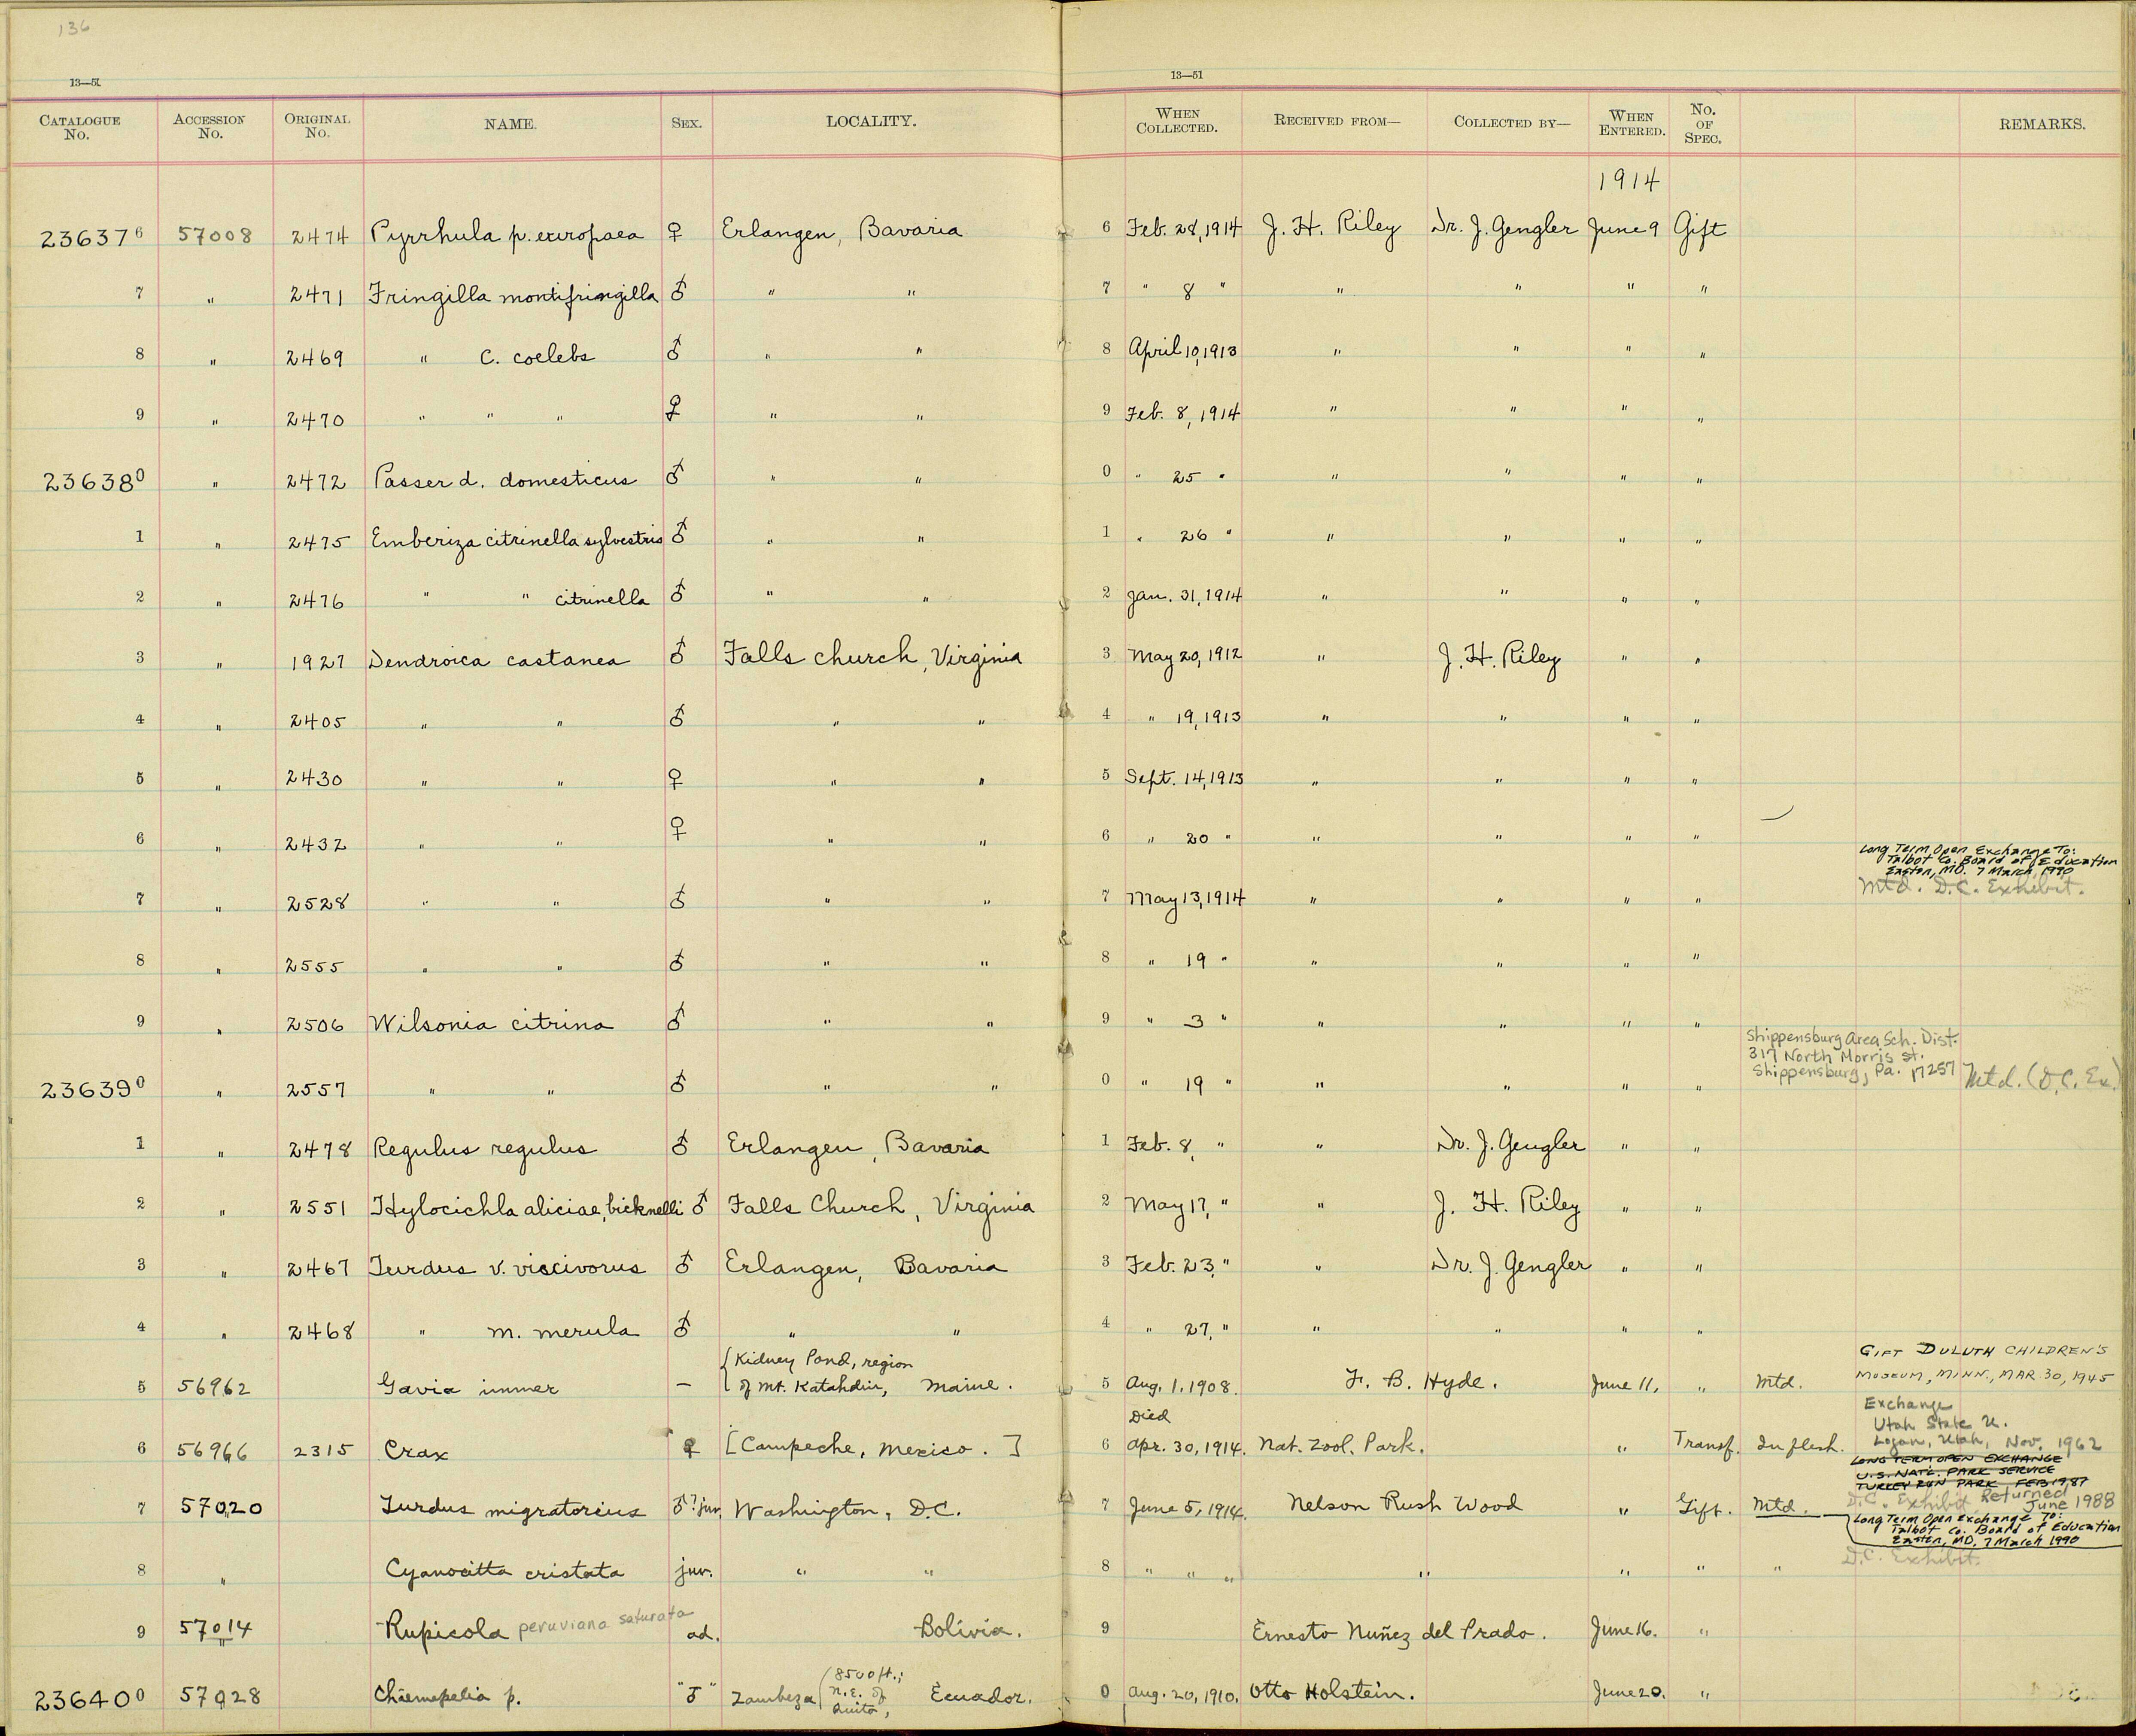 136
13—51
13—51
CATALOGUE No. ACCESSION No. ORIGINAL No. NAME. SEX. LOCALITY. WHEN COLLECTED. RECEIVED FROM— COLLECTED BY— WHEN ENTERED. No. OF SPEC. REMARKS.
1914
236376 57008 2474 Pyrrhula p. europaea ♀ Erlangen, Bavaria 6 Feb. 28, 1914 J. H. Riley Dr. J. Gengler June 9 Gift
7 " 2471 Fringilla montifringilla ♂ " " 7 " 8 " " " " "
8 " 2469 " c. coelebs ♂ " " 8 April 10, 1913 " " " "
9 " 2470 " " " ♀ " " 9 Feb. 8, 1914 " " " "
236380 " 2472 Passer d. domesticus ♂ " " 0 " 25 " " " " "
1 " 2475 Emberiza citrinella sylvestris ♂ " " 1 " 26 " " " " "
2 " 2476 " " citrinella ♂ " " 2 Jan. 31, 1914 " " " "
3 " 1927 Dendroica castanea ♂ Falls church, Virginia 3 May 20, 1912 " J. H. Riley " "
4 " 2405 " " ♂ " " 4 " 19, 1913 " " " "
5 " 2430 " " ♀ " " 5 Sept. 14, 1913 " " " "
6 " 2432 " " ♀ " " 6 " 20 " " " " "
Long Term Open Exchange To:
Talbot Co. Board of Education
Easton, MD. 7 March 1990
Mtd. D.C. Exhibit.
7 " 2528 " " ♂ " " 7 May 13, 1914 " " " "
8 " 2555 " " ♂ " " 8 " 19 " " " " "
9 " 2506 Wilsonia citrina ♂ " " 9 " 3 " " " " "
Shippensburg Area Sch. Dist.
317 North Morris St.
Shippensburg, Pa. 17257 Mtd. (D.C. Ex.)
236390 " 2557 " " ♂ " " 0 " 19 " " " " "
1 " 2478 Regulus regulus ♂ Erlangen, Bavaria 1 Feb. 8, " " Dr. J. Gengler " "
2 " 2551 Hylocichla aliciae, bicknelli ♂ Falls Church, Virginia 2 May 17, " " J. H. Riley " "
3 " 2467 Turdus v. viscivorus ♂ Erlangen, Bavaria 3 Feb. 23, " " Dr. J. Gengler " "
4 " 2468 " m. merula ♂ " " 4 " 27, " " " " "
Kidney Pond, region
5 56962 Gavia immer — of Mt. Katahdin, Maine. 5 Aug. 1, 1908. F. B. Hyde. June 11, " Mtd.
GIFT DULUTH CHILDREN'S
MUSEUM, MINN., MAR. 30, 1945
Died
6 56966 2315 Crax ♀ [Campeche, Mexico.] 6 Apr. 30, 1914. Nat. Zool. Park. " Transf. In flesh.
Exchange
Utah State U.
Logan, Utah, Nov. 1962
LONG TERM OPEN EXCHANGE
U.S. NAT'L. PARK SERVICE
TURKEY RUN PARK FEB 1987
D.C. Exhibit Returned
June 1988
7 57020 Turdus migratorius ♂? juv. Washington, D.C. 7 June 5, 1914. Nelson Rush Wood " Gift. Mtd.
Long Term Open Exchange To:
Talbot Co. Board of Education
Easton, MD, 7 March 1990
D.C. Exhibit.
8 " Cyanocitta cristata juv. " " 8 " " " " " " "
9 57014 Rupicola peruviana saturata ad. Bolivia. 9 Ernesto Nuñez del Prado. June 16. "
236400 57028 Chaemepelia p. "♂" Zambeza (8500 ft.; n.e. of Quito, Ecuador. 0 Aug. 20, 1910. Otto Holstein. June 20. "